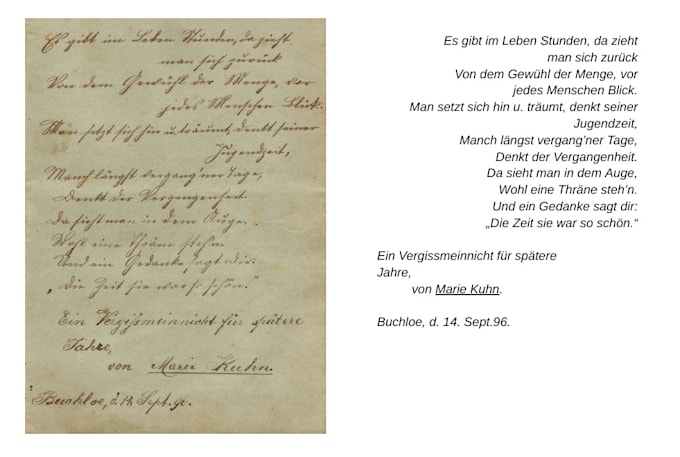 Es gibt im Leben Stunden, da zieht
man sich zurück
Von dem Gewühl der Menge, vor
jedes Menschen Blick.
Man setzt sich hin u. träumt, denkt seiner
Jugendzeit,
Manch längst vergang'ner Tage,
Denkt der Vergangenheit.
Da sieht man in dem Auge.
Wohl eine Thräne steh'n.
Und ein Gedanke sagt dir:
„Die Zeit sie war so schön."
Ein Vergißmeinnicht für spätere
Jahre,
von Marie Kuhn.
Buchloe, d. 14. Sept. 96.
Es gibt im Leben Stunden, da zieht
man sich zurück
Von dem Gewühl der Menge, vor
jedes Menschen Blick.
Man setzt sich hin u. träumt, denkt seiner
Jugendzeit,
Manch längst vergang'ner Tage,
Denkt der Vergangenheit.
Da sieht man in dem Auge,
Wohl eine Thräne steh'n.
Und ein Gedanke sagt dir:
„Die Zeit sie war so schön.“
Ein Vergissmeinnicht für spätere
Jahre,
von Marie Kuhn.
Buchloe, d. 14. Sept.96.